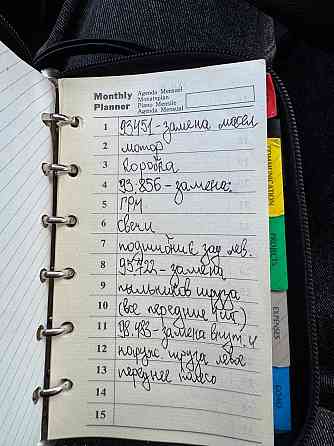 Monthly
Planner
Agenda Mensuel
Monatsplan
Piano Mensile
Agenda Mensual
1 93451-замена масел
2 мотор
3 коробка
4 93.856-замена:
5 ГРМ
6 свечи
7 подшибник зад лев.
8 95722-замена
9 пыльников шруза
10 (все передние 4шт.)
11 98.983-замена внут. и
12 наружн шруза левое
13 переднее колесо
14
15
COMMUNICATION
PROJECTS
EXPENSES